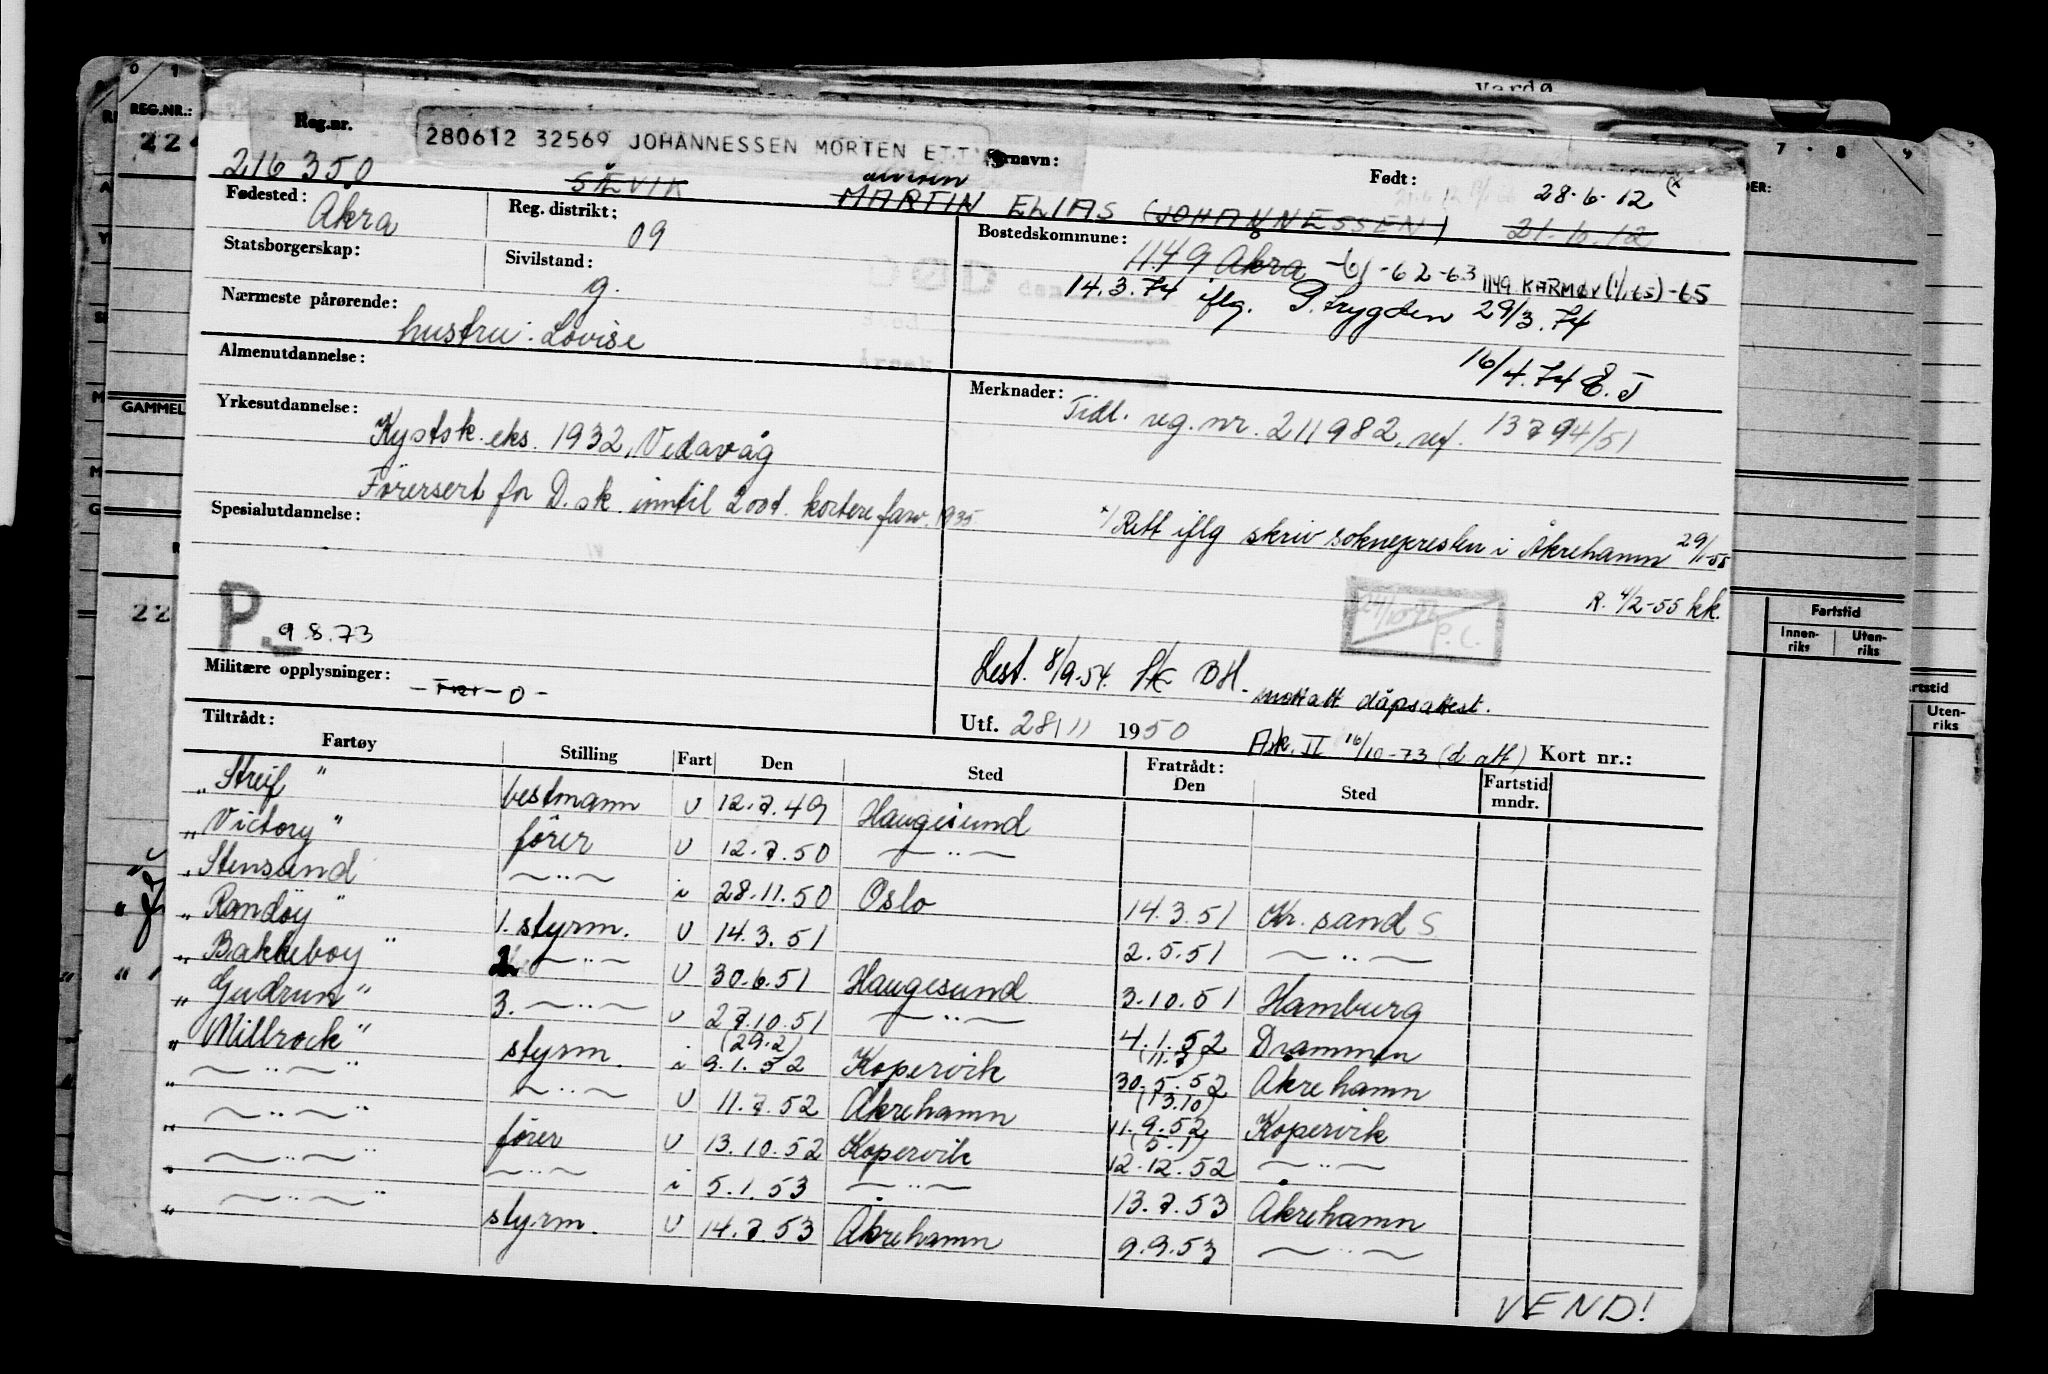 Varda
REG.NR.:
Reg.nr.
280612 32569 JOHANNESSEN MORTEN E
Fornavn:
Født:
216350
SÆVIK
MARTIN ELIAS (JOHANNESSEN)
28-6-12 (x
21-6-12
Fødested:
Akra
Reg. distrikt:
09
Bostedskommune:
1149 Akra -61-62-63 1149 KARMØY (1/1 65) -65
Statsborgerskap:
Sivilstand:
g.
DØD
14.3.74 iflg. P.trygden 29/3.74
Nærmeste pårørende:
hustru: Lovise
Årsak
16/4.74 E.J
Almenutdannelse:
Merknader:
Tidl. reg. nr. 211982, ref. 13794/51
Yrkesutdannelse:
Kystsk. eks. 1932, Vedavåg
Førersert for D.sk. inntil 200t. kortere farv. 1935
Spesialutdannelse:
x/ Rett iflg skriv soknepresten i Åkrehamn 29/1-55
R. 4/2-55 kk.
P. 9.8.73
Hest. 8/9-54. BH. - mottatt dåpsattest.
Militære opplysninger:
-0-
Utf. 28/11 1950
16/10-73 (d att)
Kort nr.:
Tiltrådt:
Fartøy
Stilling
Fart
Den
Sted
Fratrådt:
Den
Sted
Fartstid
mndr.
"Streif" bestmann U 12.7.49 Haugesund
"Victory" fører U 12.7.50 —"—
"Stensund —"— i 28.11.50 Oslo 14.3.51 Kr. sand S
"Randøy" 1. styrm. U 14.3.51 2.5.51 —"—
"Bakkeboy" 2. —"— U 30.6.51 Haugesund 3.10.51 Hamburg
"Gudrun" 3. —"— U 27.10.51 —"— 4.1.52 Drammen
(29.2) (11.7)
"Millrock" styrm. i 9.1.52 Kopervik 30.5.52 Åkrehamn
(13.10)
" —"— " —"— U 11.7.52 Åkrehamn 11.9.52 Kopervik
(5.1)
" —"— " fører U 13.10.52 Kopervik 12.12.52 —"—
" —"— " —"— i 5.1.53 —"— 13.7.53 Åkrehamn
" —"— " styrm. U 14.7.53 Åkrehamn 9.9.53 —"—
VEND!
GAMMEL
Fartstid
Innen-
riks
Uten-
riks
Uten-
riks